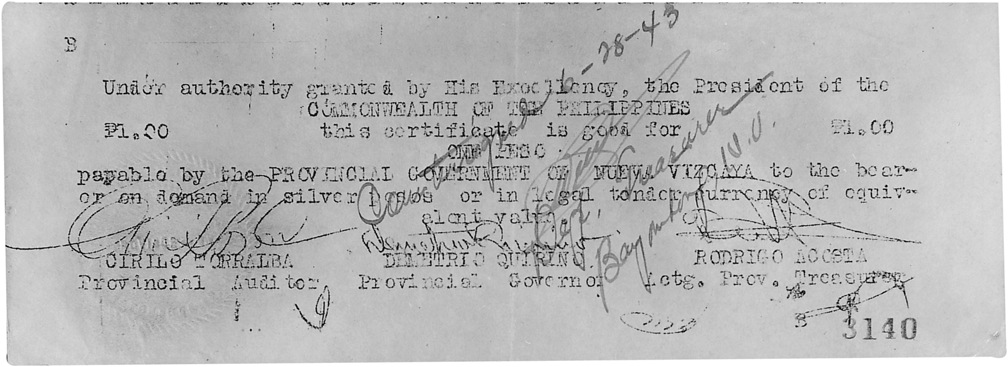 B
Under authority granted by His Excellency, the President of the
COMMONWEALTH OF THE PHILIPPINES
₱1.00 this certificate is good for ₱1.00
ONE PESO
payable by the PROVINCIAL GOVERNMENT OF NUEVA VIZCAYA to the bear-
er on demand in silver pesos or in legal tender currency of equiv-
alent value.
CIRILO TORRALBA DEMETRIO QUIRINO RODRIGO ACOSTA
Provincial Auditor Provincial Governor Actg. Prov. Treasurer
B 3140
-28-43
Treasurer
Bayombong, N.V.